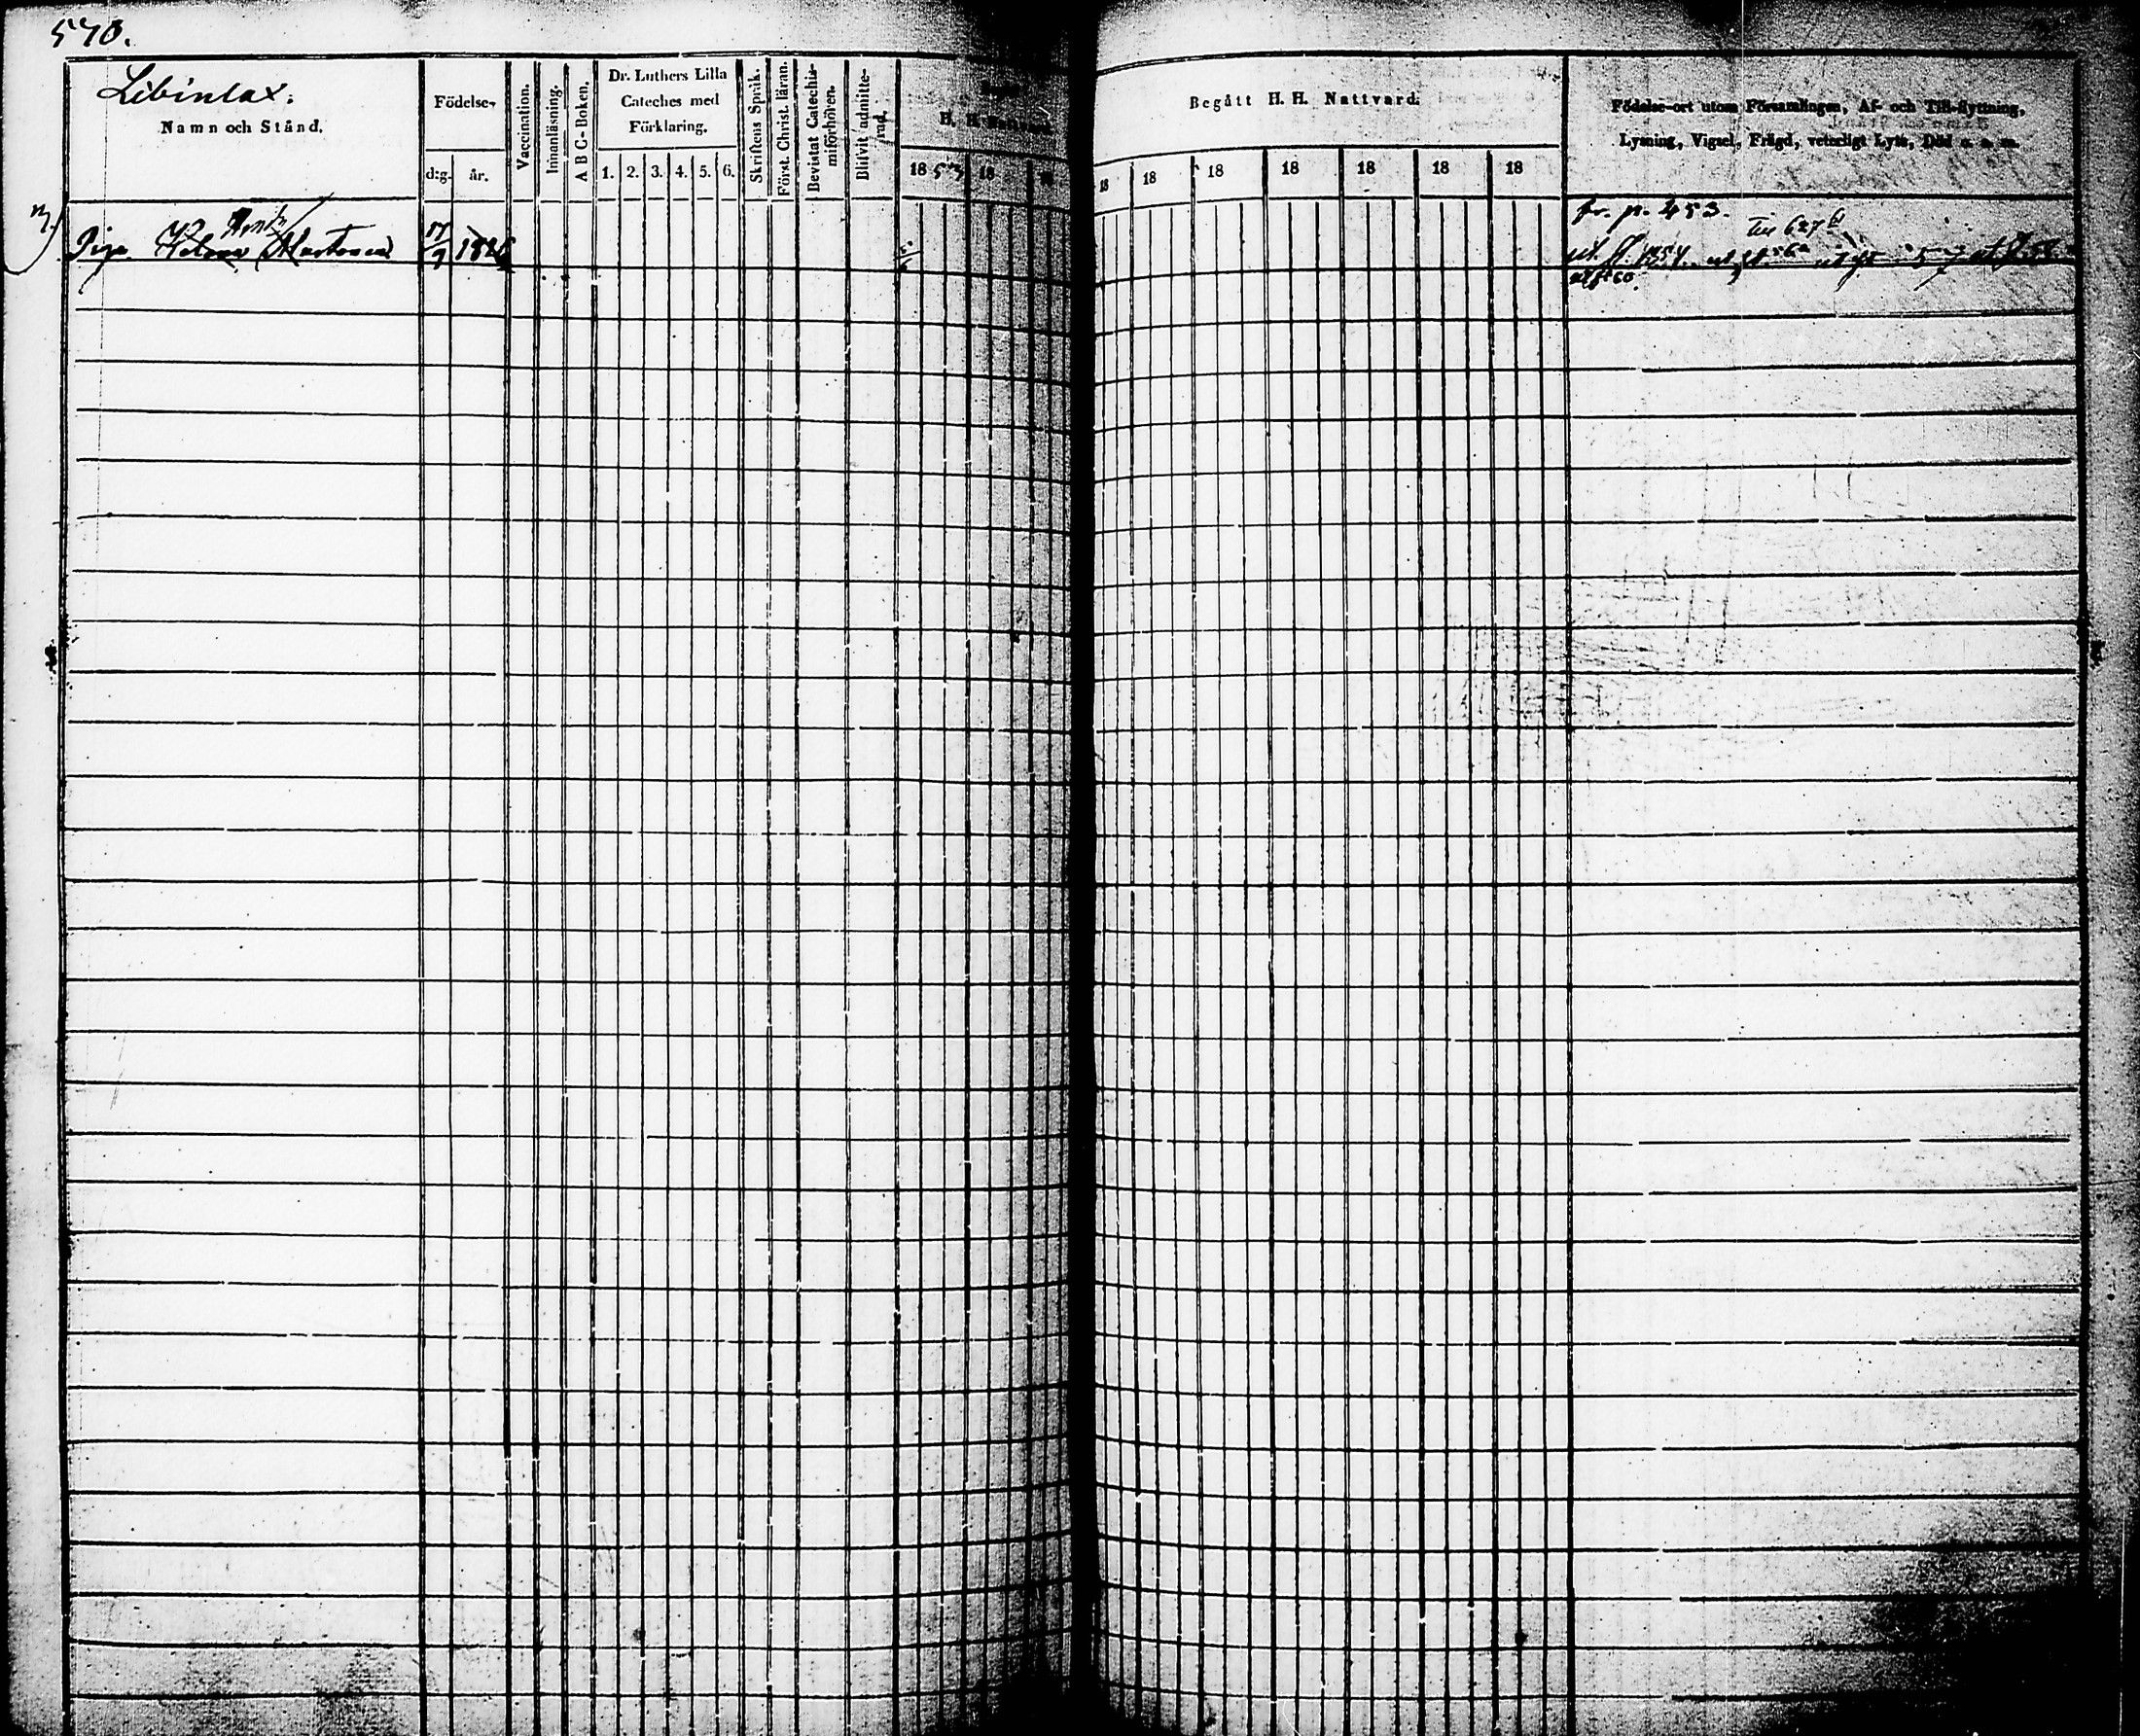 570.
Libinlax.
Namn och Stånd.
Födelse-
d:g. år.
Vaccination.
Innanläsning.
A B C-Boken.
Dr. Luthers Lilla
Cateches med
Förklaring.
1. 2. 3. 4. 5. 6.
Skriftens Språk.
Först. Christ. läran.
Bevistat Catechis-
miförhören.
Blifvit admitte-
rad.
H. H. Nattvard
18 53 18
Begått H. H. Nattvard.
18 18 18 18 18 18 18
Födelse-ort utom Församlingen, Af- och Till-flyttning,
Lysning, Vigsel, Frägd, veterligt Lyte, Död o. s. m.
Piga Helena 17/9 1826
fr. p. 453.
Till 627